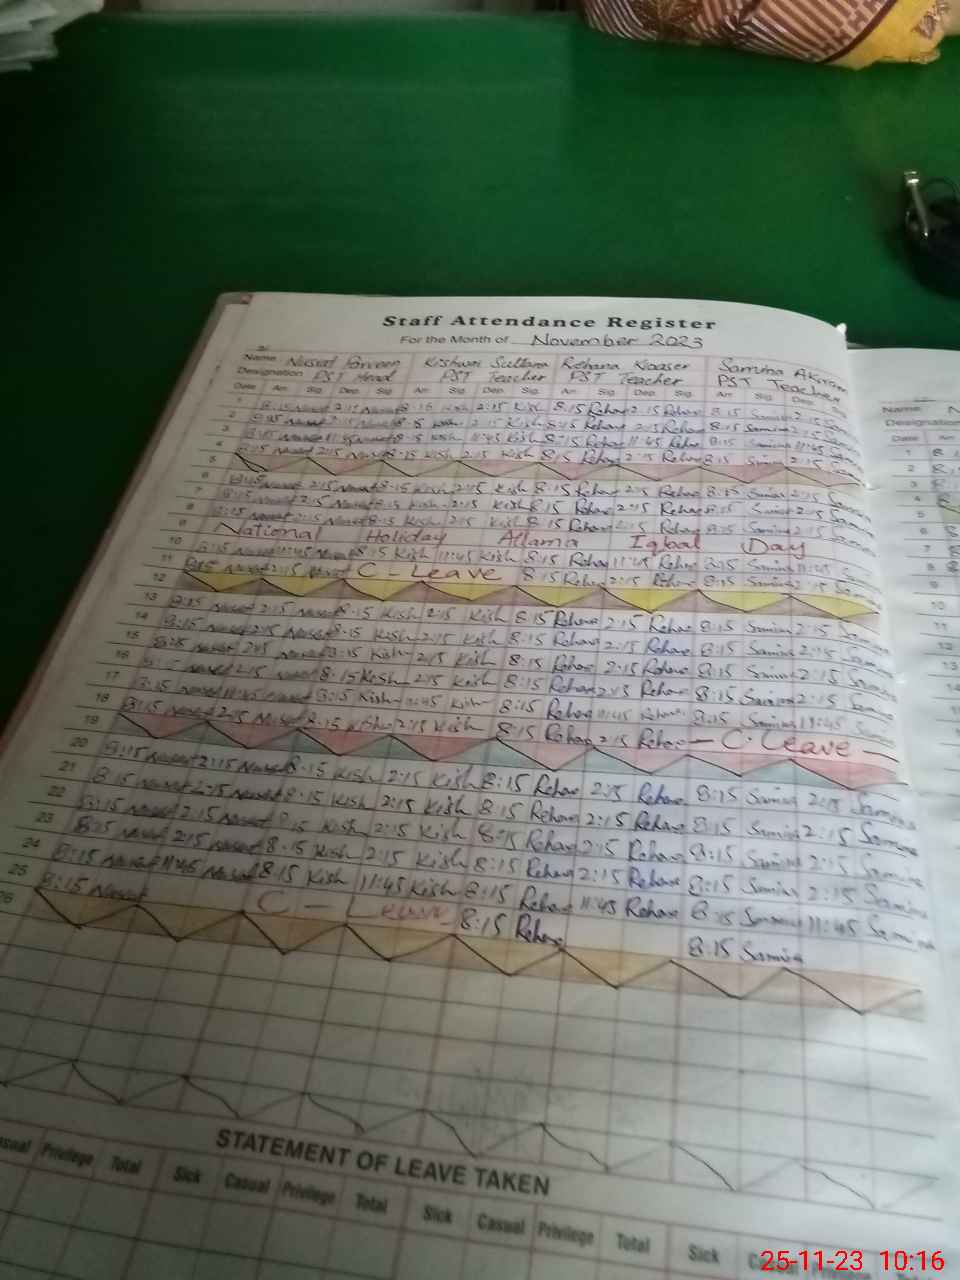 Staff Attendance Register
For the Month of November 2023
Name Nusrat Parveen Kishwar Sultana Rehana Kosser Samina Akhtar
Designation PST Head PST Teacher PST Teacher PST Teacher
Date Arr. Sig. Dep. Sig. Arr. Sig. Dep. Sig. Arr. Sig. Dep. Sig. Arr. Sig. Dep. Sig.
1 8:15 Nusrat 2:15 Nusrat 8:15 Kish 2:15 Kish 8:15 Rehan 2:15 Rehan 8:15 Samina 2:15 Samina
2 8:15 Nusrat 2:15 Nusrat 8:15 Kish 2:15 Kish 8:15 Rehan 2:15 Rehan 8:15 Samina 2:15 Samina
3 8:15 Nusrat 11:45 Nusrat 8:15 Kish 11:45 Kish 8:15 Rehan 11:45 Rehan 8:15 Samina 11:45 Samina
4 8:15 Nusrat 2:15 Nusrat 8:15 Kish 2:15 Kish 8:15 Rehan 2:15 Rehan 8:15 Samina 2:15 Samina
5
6 8:15 Nusrat 2:15 Nusrat 8:15 Kish 2:15 Kish 8:15 Rehan 2:15 Rehan 8:15 Samina 2:15 Samina
7 8:15 Nusrat 2:15 Nusrat 8:15 Kish 2:15 Kish 8:15 Rehan 2:15 Rehan 8:15 Samina 2:15 Samina
8 8:15 Nusrat 2:15 Nusrat 8:15 Kish 2:15 Kish 8:15 Rehan 2:15 Rehan 8:15 Samina 2:15 Samina
9 National Holiday Allama Iqbal Day
10 8:15 Nusrat 11:45 Nusrat 8:15 Kish 11:45 Kish 8:15 Rehan 11:45 Rehan 8:15 Samina 11:45 Samina
11 8:15 Nusrat 2:15 Nusrat C - Leave 8:15 Rehan 2:15 Rehan 8:15 Samina 2:15 Samina
12
13 8:15 Nusrat 2:15 Nusrat 8:15 Kish 2:15 Kish 8:15 Rehan 2:15 Rehan 8:15 Samina 2:15 Samina
14 8:15 Nusrat 2:15 Nusrat 8:15 Kish 2:15 Kish 8:15 Rehan 2:15 Rehan 8:15 Samina 2:15 Samina
15 8:15 Nusrat 2:15 Nusrat 8:15 Kish 2:15 Kish 8:15 Rehan 2:15 Rehan 8:15 Samina 2:15 Samina
16 8:15 Nusrat 2:15 Nusrat 8:15 Kish 2:15 Kish 8:15 Rehan 2:15 Rehan 8:15 Samina 2:15 Samina
17 8:15 Nusrat 11:45 Nusrat 8:15 Kish 11:45 Kish 8:15 Rehan 11:45 Rehan 8:15 Samina 11:45 Samina
18 8:15 Nusrat 2:15 Nusrat 8:15 Kish 2:15 Kish 8:15 Rehan 2:15 Rehan - C. Leave -
19
20 8:15 Nusrat 2:15 Nusrat 8:15 Kish 2:15 Kish 8:15 Rehan 2:15 Rehan 8:15 Samina 2:15 Samina
21 8:15 Nusrat 2:15 Nusrat 8:15 Kish 2:15 Kish 8:15 Rehan 2:15 Rehan 8:15 Samina 2:15 Samina
22 8:15 Nusrat 2:15 Nusrat 8:15 Kish 2:15 Kish 8:15 Rehan 2:15 Rehan 8:15 Samina 2:15 Samina
23 8:15 Nusrat 2:15 Nusrat 8:15 Kish 2:15 Kish 8:15 Rehan 2:15 Rehan 8:15 Samina 2:15 Samina
24 8:15 Nusrat 11:45 Nusrat 8:15 Kish 11:45 Kish 8:15 Rehan 11:45 Rehan 8:15 Samina 11:45 Samina
25 8:15 Nusrat C - Leave 8:15 Rehan 8:15 Samina
26
STATEMENT OF LEAVE TAKEN
Privilege Total Sick Casual Privilege Total Sick Casual Privilege Total Sick
Name
Date
25-11-23 10:16